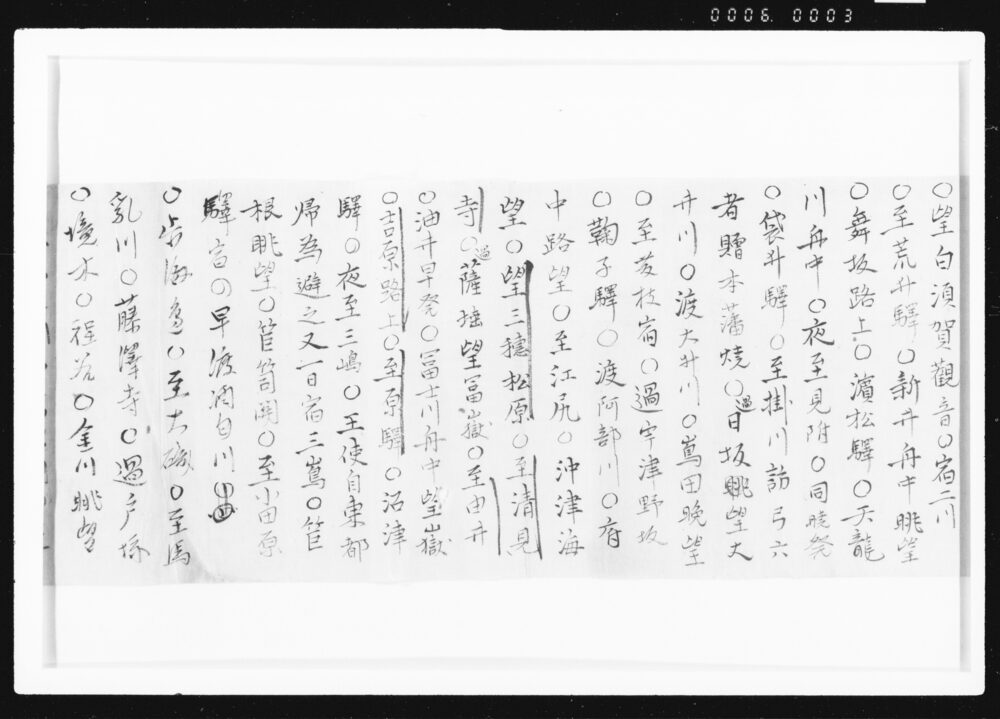 0006. 0003
○望白須賀觀音○宿二川
○至荒井驛○新井舟中眺望
○舞坂路上○濵松驛○天龍
川舟中○夜至見附○同曉發
○袋井驛○至掛川訪弓六
者贈本藩燒○過日坂眺望大
井川○渡大井川○嶌田晩望
○至蒡枝宿○過宇津野坂
○鞠子驛○渡阿部川○府
中路望○至江尻○沖津海
望○望三穗松原○至清見
寺○過薩埵望冨嶽○至由井
○油井早發○冨士川舟中望嶽
○吉原路上○至原驛○沼津
驛○夜至三嶋○王使自東都
帰為避之又一日宿三嶌○筥
根眺望○筥關○至小田原
驛宿○早渡酒匂川
○至大磯○至馬
乳川○藤澤寺○過戸塚
○境木○程谷○金川眺望